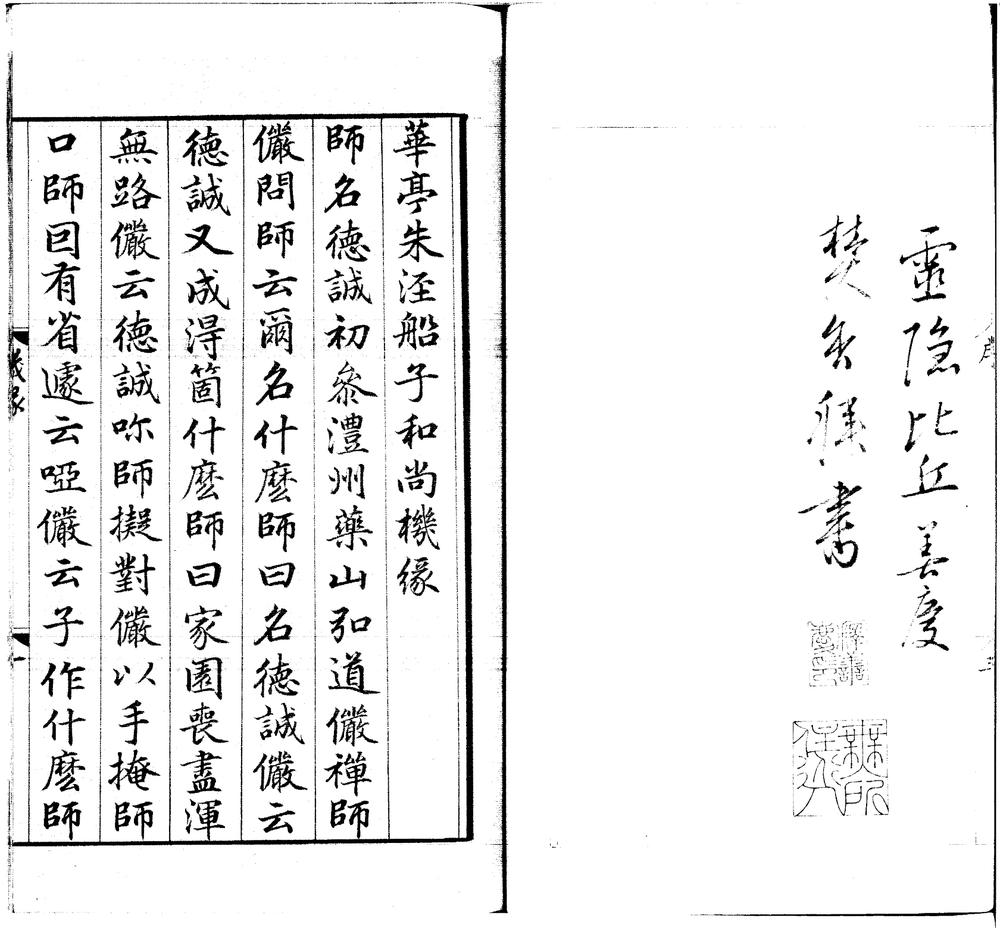 靈隱比丘善慶
焚香拜書
華亭朱涇船子和尚機緣
師名德誠初參澧州藥山弘道儼禪師
儼問師云爾名什麽師曰名德誠儼云
德誠又成得箇什麽師曰家園喪盡渾
無路儼云德誠咏師擬對儼以手掩師
口師因有省遽云啞儼云子作什麽師
機緣
一